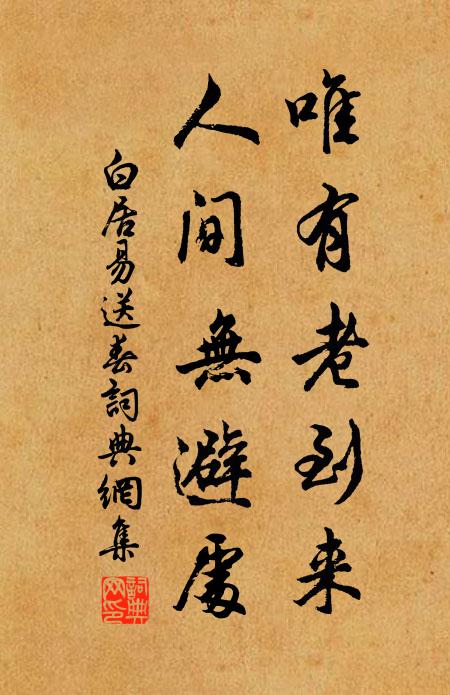 唯有老到来
人间無避處
白居易送春詞典網集
詞典
网印